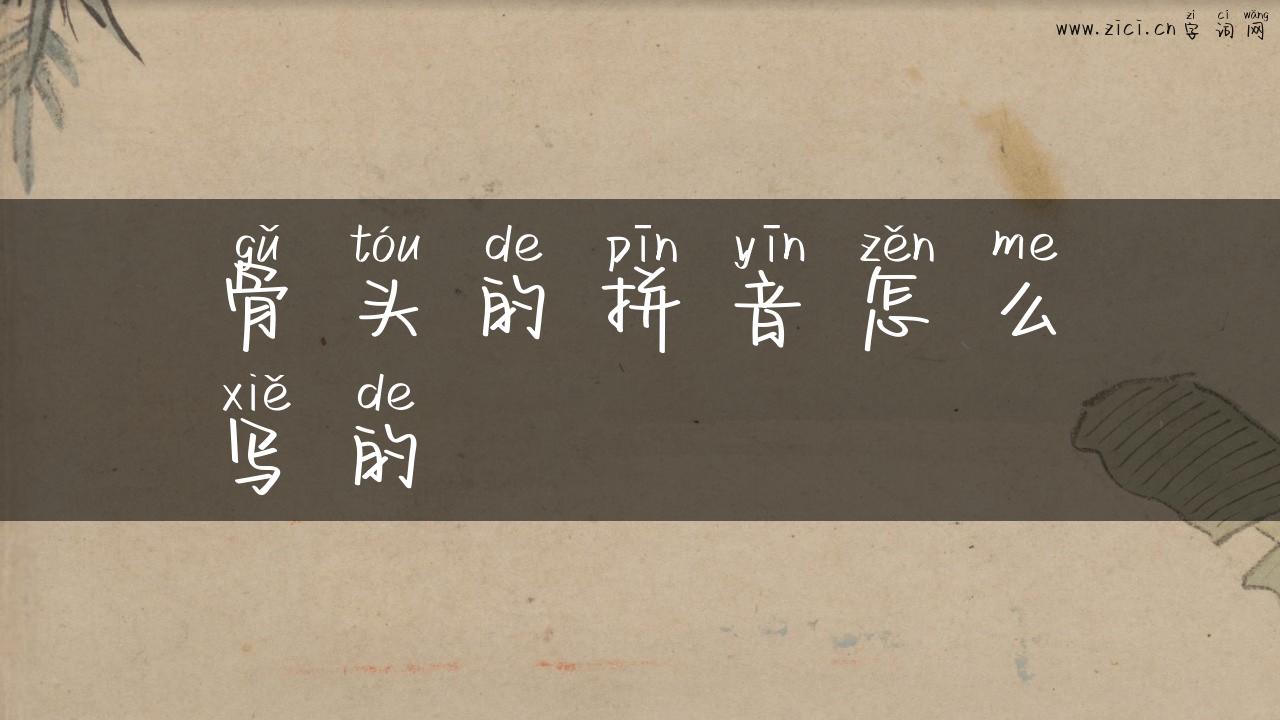 zì cí wǎng
www.zici.cn 字 词 网
gǔ tóu de pīn yīn zěn me
骨 头 的 拼 音 怎 么
xiě de
写 的